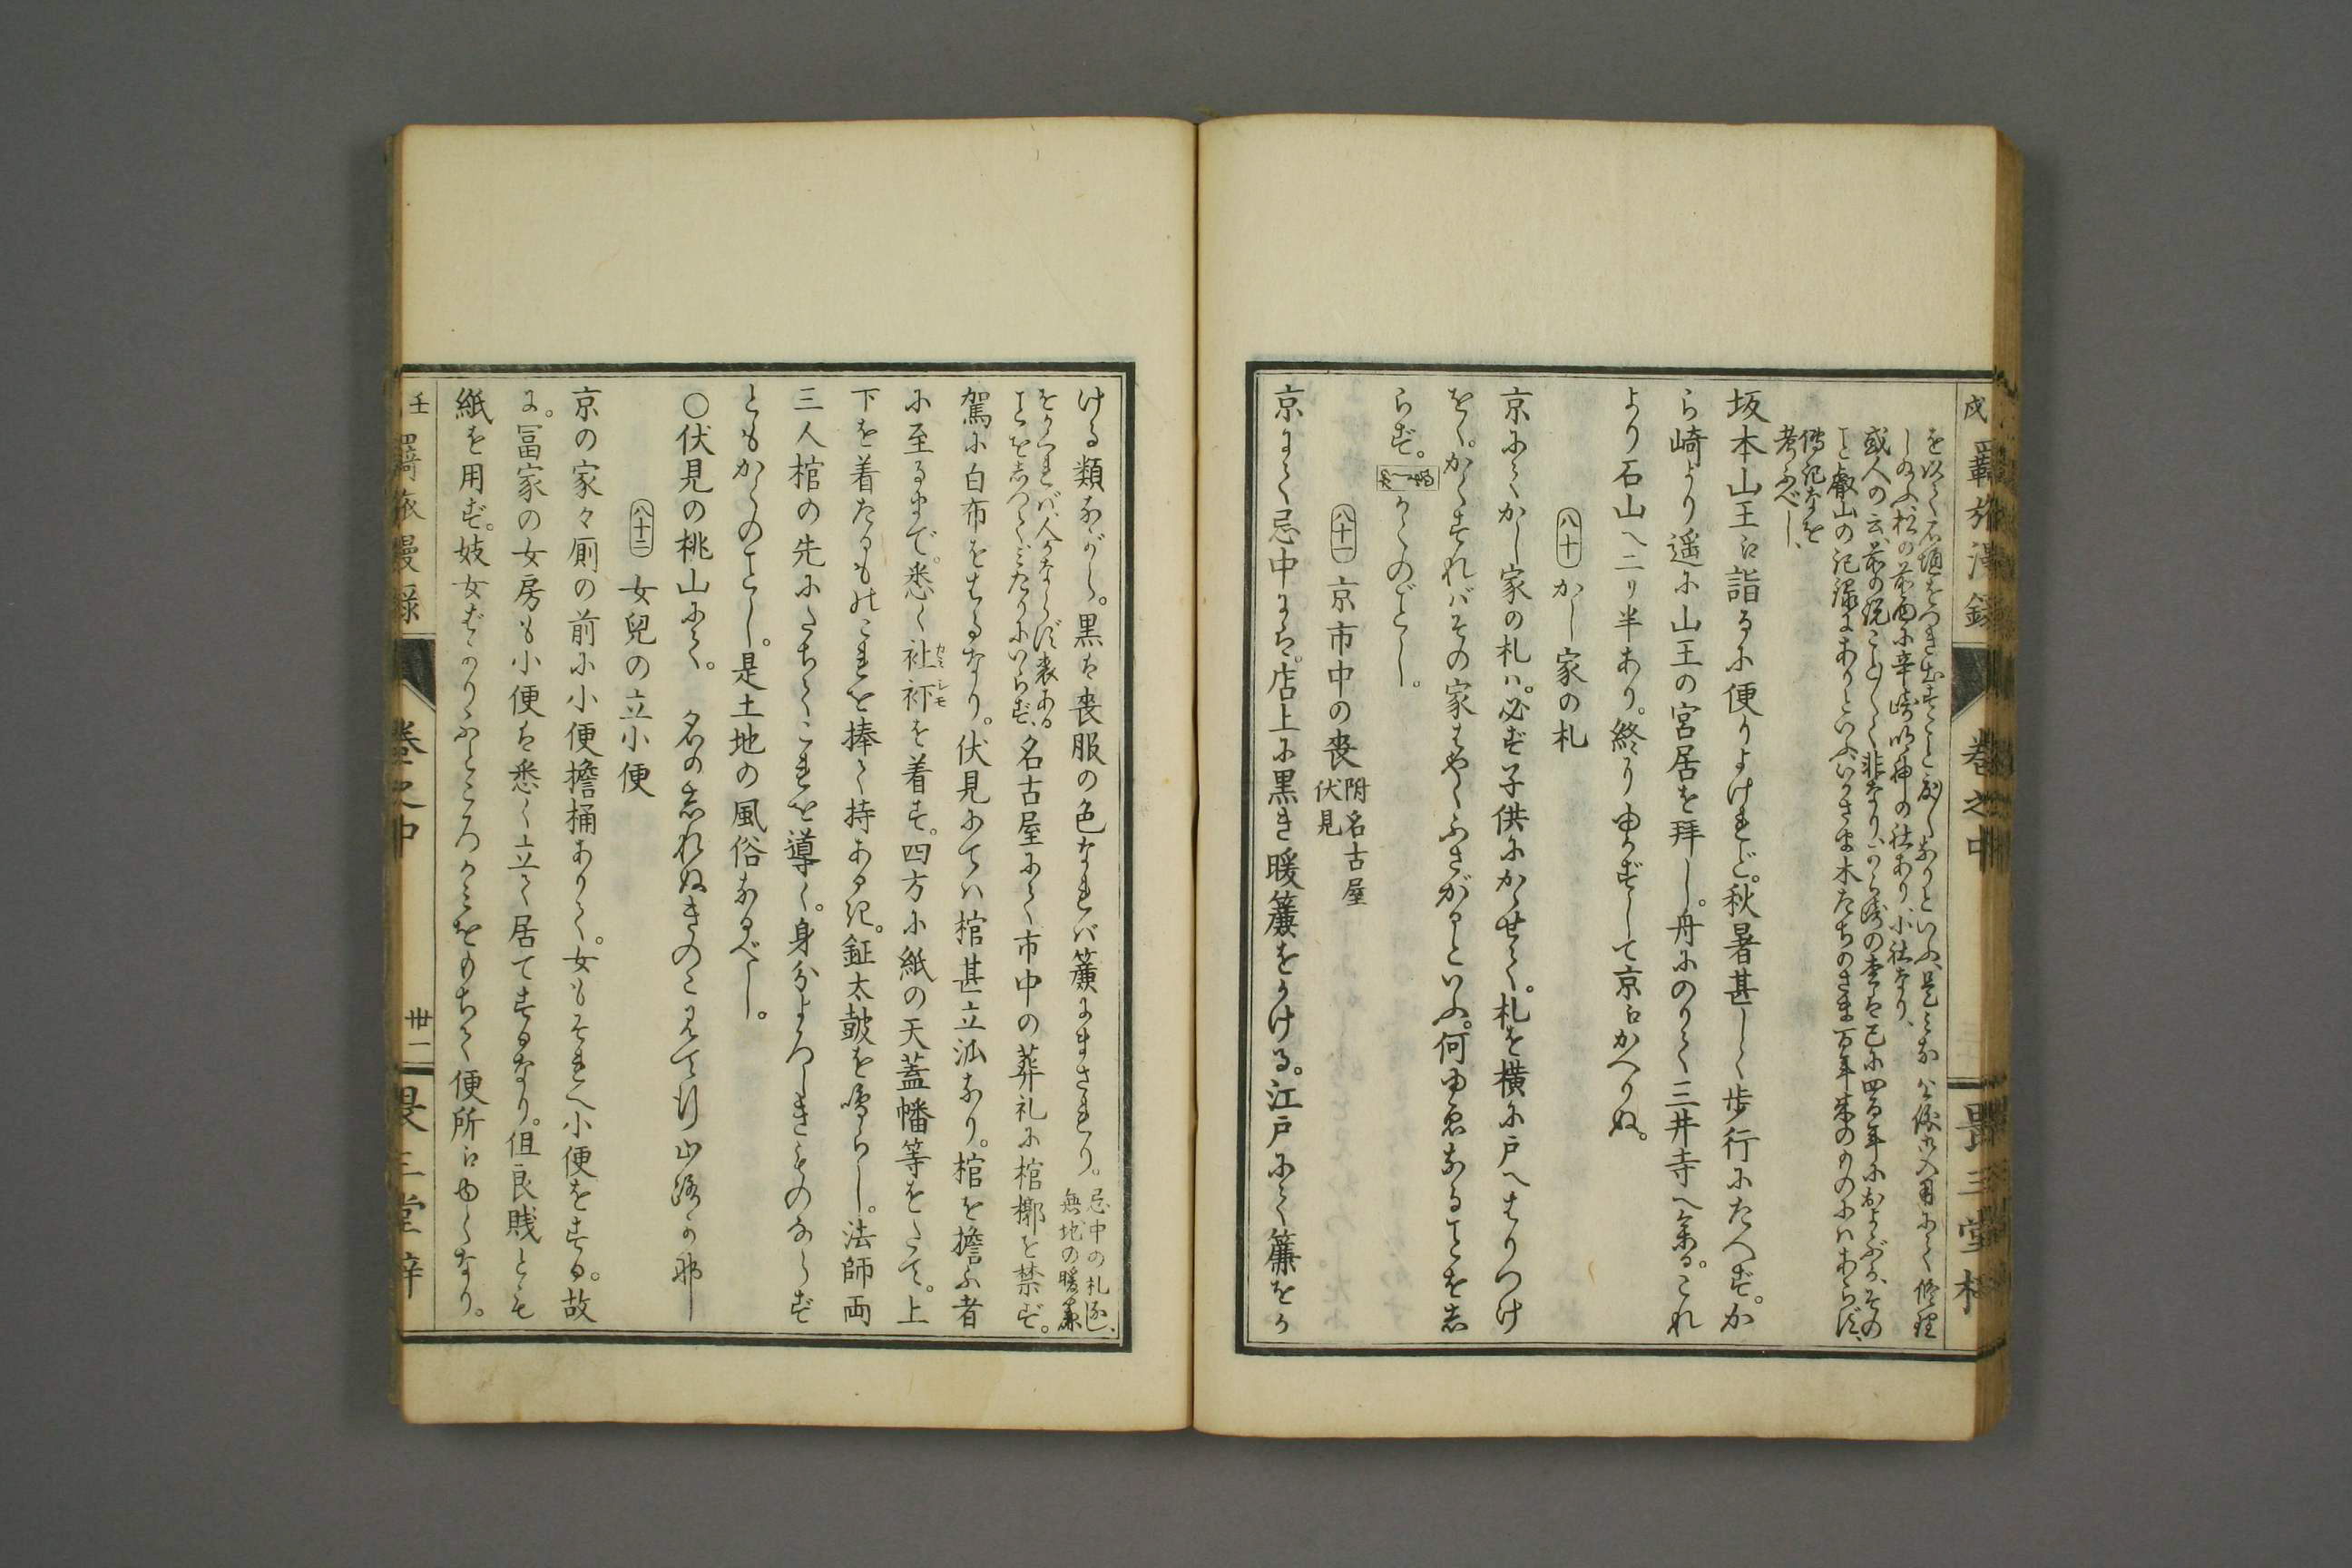 戌 羇旅漫録 巻之中 畏三堂梓
を以て石垣をつき出すこと度〻なりといふ、是みな公儀御入用にて修理
しのふ松の前面に辛崎明神の社あり小社なり、
或人の云前の説こと〴〵く非なり、から崎の事は已に四百年におよぶか、その
こと叡山の記録にありといふ、いかさま木たちのさま百年来のものにはあらず、
傳記などを
考ふべし、
坂本山王に詣るに便りよけれど。秋暑甚しく歩行にたへず。か
ら崎より遥に山王の宮居を拜し。舟にのりて三井寺へ参る。これ
より石山へ二リ半あり。終りゆかずして京にかへりぬ。
八十 かし家の札
京にてかし家の札ハ。必ず子供にかゝせて。札を横に戸へはりつけ
をく。かくすればその家はやくふさがるといふ。何ゆゑなることをし
らず。
かくのごとし。
八十一 京市中の喪 附名古屋
伏見
京にて忌中には。店上に黒き暖簾をかける。江戸にて簾をか
ける類ながら。黒は喪服の色なれバ簾にまされり。 忌中の札なし、
無地の暖簾
をかくれバ、人かならず喪ある
ことをしつてミだりにいらず、 名古屋にて市中の葬礼に棺槨を禁ず。
駕に白布をはるなり。伏見にてハ棺甚立派なり。棺を擔ふ者
に至るまで。悉く𧘕𧘔を着す。四方に紙の天蓋幡等をたて。上
カミシモ
下を着たるものこれを捧て持ありく。鉦太鼓を鳴らし。法師両
三人棺の先にたちてこれを導く。身分よろしきものならず
ともかくのごとし。是土地の風俗なるべし。
○伏見の桃山にて。 名のしれぬきのこ見て行山路か那
八十二 女兒の立小便
京の家々厠の前に小便擔桶ありて。女もそれへ小便をする。故
に。冨家の女房も小便は悉く立て居てするなり。但良賎とも
紙を用ず。妓女ばかりふところかみをもちて便所にゆくなり。
壬 羇旅漫録 巻之中 丗一 畏三堂梓